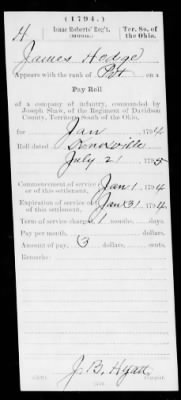 (1794.)
H Isaac Roberts' Reg't. Ter. So. of the Ohio.
(MILITIA.)
James Hodge
Appears with the rank of Pvt on a
Pay Roll
of a company of infantry, commanded by
Joseph Shaw, of the Regiment of Davidson
County, Territory South of the Ohio,
for Jan 1794
Roll dated Knoxville
July 21 1795
Commencement of service or of this settlement, Jan 1 1794
Expiration of service or of this settlement, Jan 31 1794
Term of service charged, 1 months, days.
Pay per month, dollars
Amount of pay, 3 dollars
Remarks:
J. B. Hyatt
Copyist.